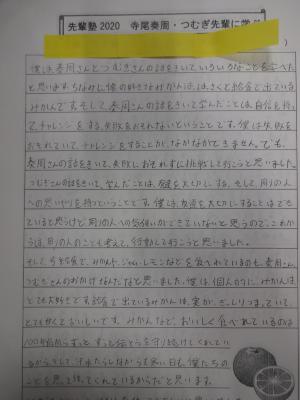 先輩塾2020 寺尾奏周・つむぎ先輩に学ぶ
僕は、奏周さんとつむぎさんの話をきいていろいろなことを学べた
と思います。ちなみに僕の好きなみかんは、よく給食で出ている
みかんです。そして、奏周さんの話をきいて学んだことは、自信を持っ
て、チャレンジをする、失敗をおそれないということです。僕は失敗を
おそれていて、チャレンジをすることが、なかなかできません。でも、
奏周さんの話をきいて、失敗におそれずに挑戦して行こうと思いました。
つむぎさんの話をきいて、学んだことは、友達を大切にする、そして、周りの人
への思いやりを持つということです。僕は、友達を大切にすることはでき
ていると思うけど、周りの人への気使いができていないと思うので、これか
らは、周りの人のことも考えて、行動して行こうと思いました。
そして、今給食で、みかんや、ジャム、レモンなどを食べれているのも、奏周さん、
つむぎさんのおかげなんだなと思いました。僕は、個人的に、みかんは
とても大好きです。給食で出ているみかんは、実が、ぎっしりつまっていて
とても甘くておいしいです。みかんなど、おいしく食べれているのは
100年前からずっと、ずっと伝統を守り続けてくれてい
るからだし、汗水たらしながらも寒い日も、僕たちの
ことを思って作ってくれているからだと思います。